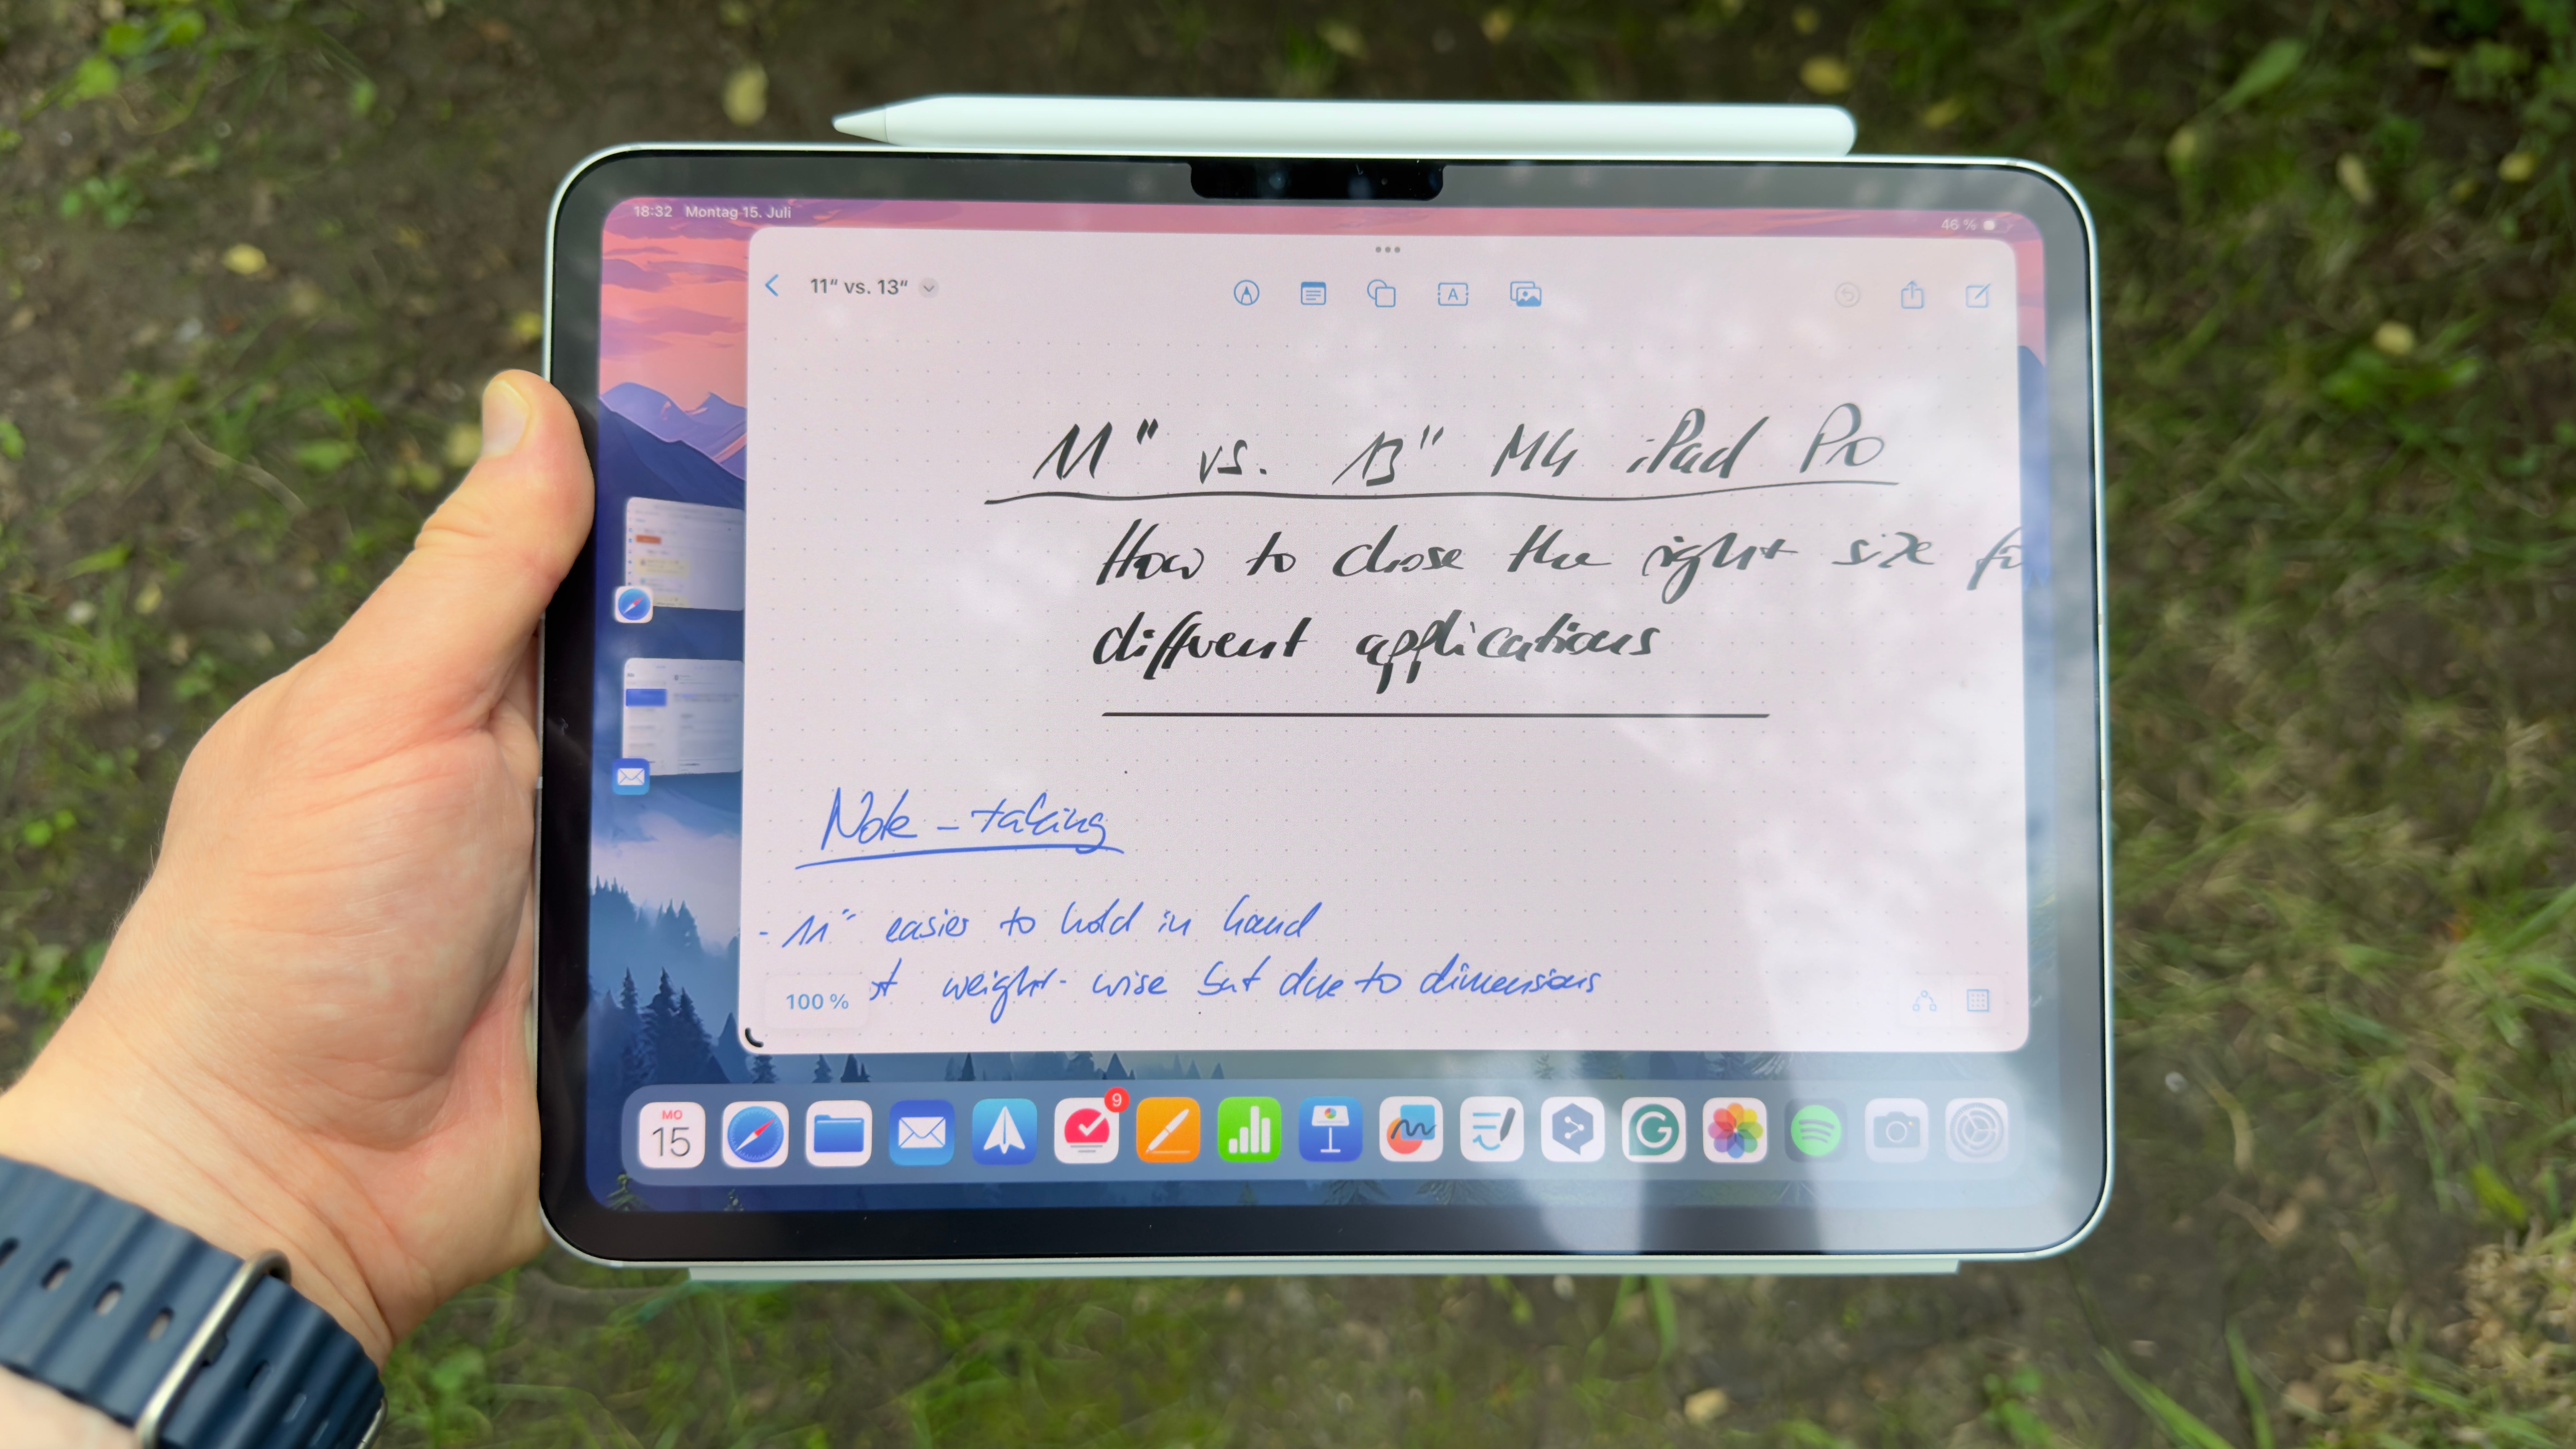 18:32 Montag 15. Juli
46 %
11“ vs. 13“
A
11" vs. 13" M4 iPad Pro
How to chose the right size for
different applications
Note-taking
- 11" easier to hold in hand
weight-wise but due to dimensions
100 %
9
MO
15
G